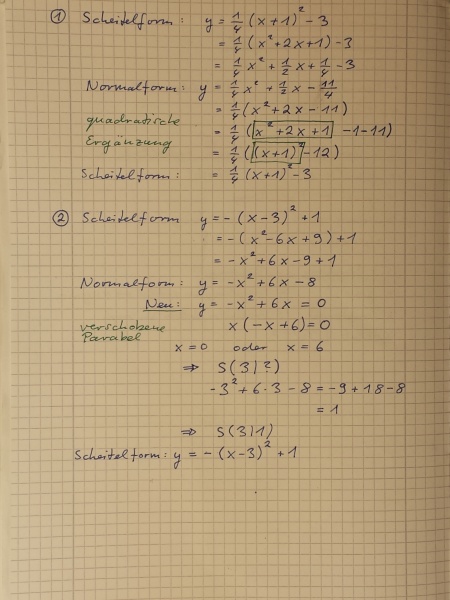 ① Scheitelform: y = 1/4 (x+1)² - 3
= 1/4 (x²+2x+1) - 3
= 1/4 x² + 1/2 x + 1/4 - 3
Normalform: y = 1/4 x² + 1/2 x - 11/4
= 1/4 (x² + 2x - 11)
quadratische Ergänzung = 1/4 (x² + 2x + 1 - 1 - 11)
= 1/4 ((x+1)² - 12)
Scheitelform: = 1/4 (x+1)² - 3
② Scheitelform y = - (x-3)² + 1
= - (x² - 6x + 9) + 1
= -x² + 6x - 9 + 1
Normalform: y = -x² + 6x - 8
Neu: y = -x² + 6x = 0
verschobene Parabel x(-x+6) = 0
x = 0 oder x = 6
⇒ S(3|?)
-3² + 6·3 - 8 = -9 + 18 - 8
= 1
⇒ S(3|1)
Scheitelform: y = - (x-3)² + 1